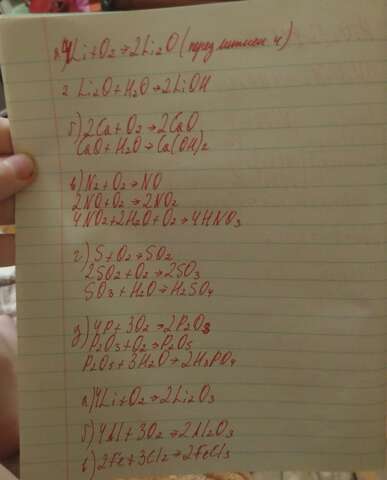 а) 4Li+O₂→2Li₂O (перед литием 4)
2 Li₂O+H₂O→2LiOH
б) 2Ca+O₂→2CaO
CaO+H₂O→Ca(OH)₂
в) N₂+O₂→NO
2NO+O₂→2NO₂
4NO₂+2H₂O+O₂→4HNO₃
г) S+O₂→SO₂
2SO₂+O₂→2SO₃
SO₃+H₂O→H₂SO₄
д) 4P+3O₂→2P₂O₃
P₂O₃+O₂→P₂O₅
P₂O₅+3H₂O→2H₃PO₄
а) 4Li+O₂→2Li₂O₃
б) 4Al+3O₂→2Al₂O₃
в) 2Fe+3Cl₂→2FeCl₃